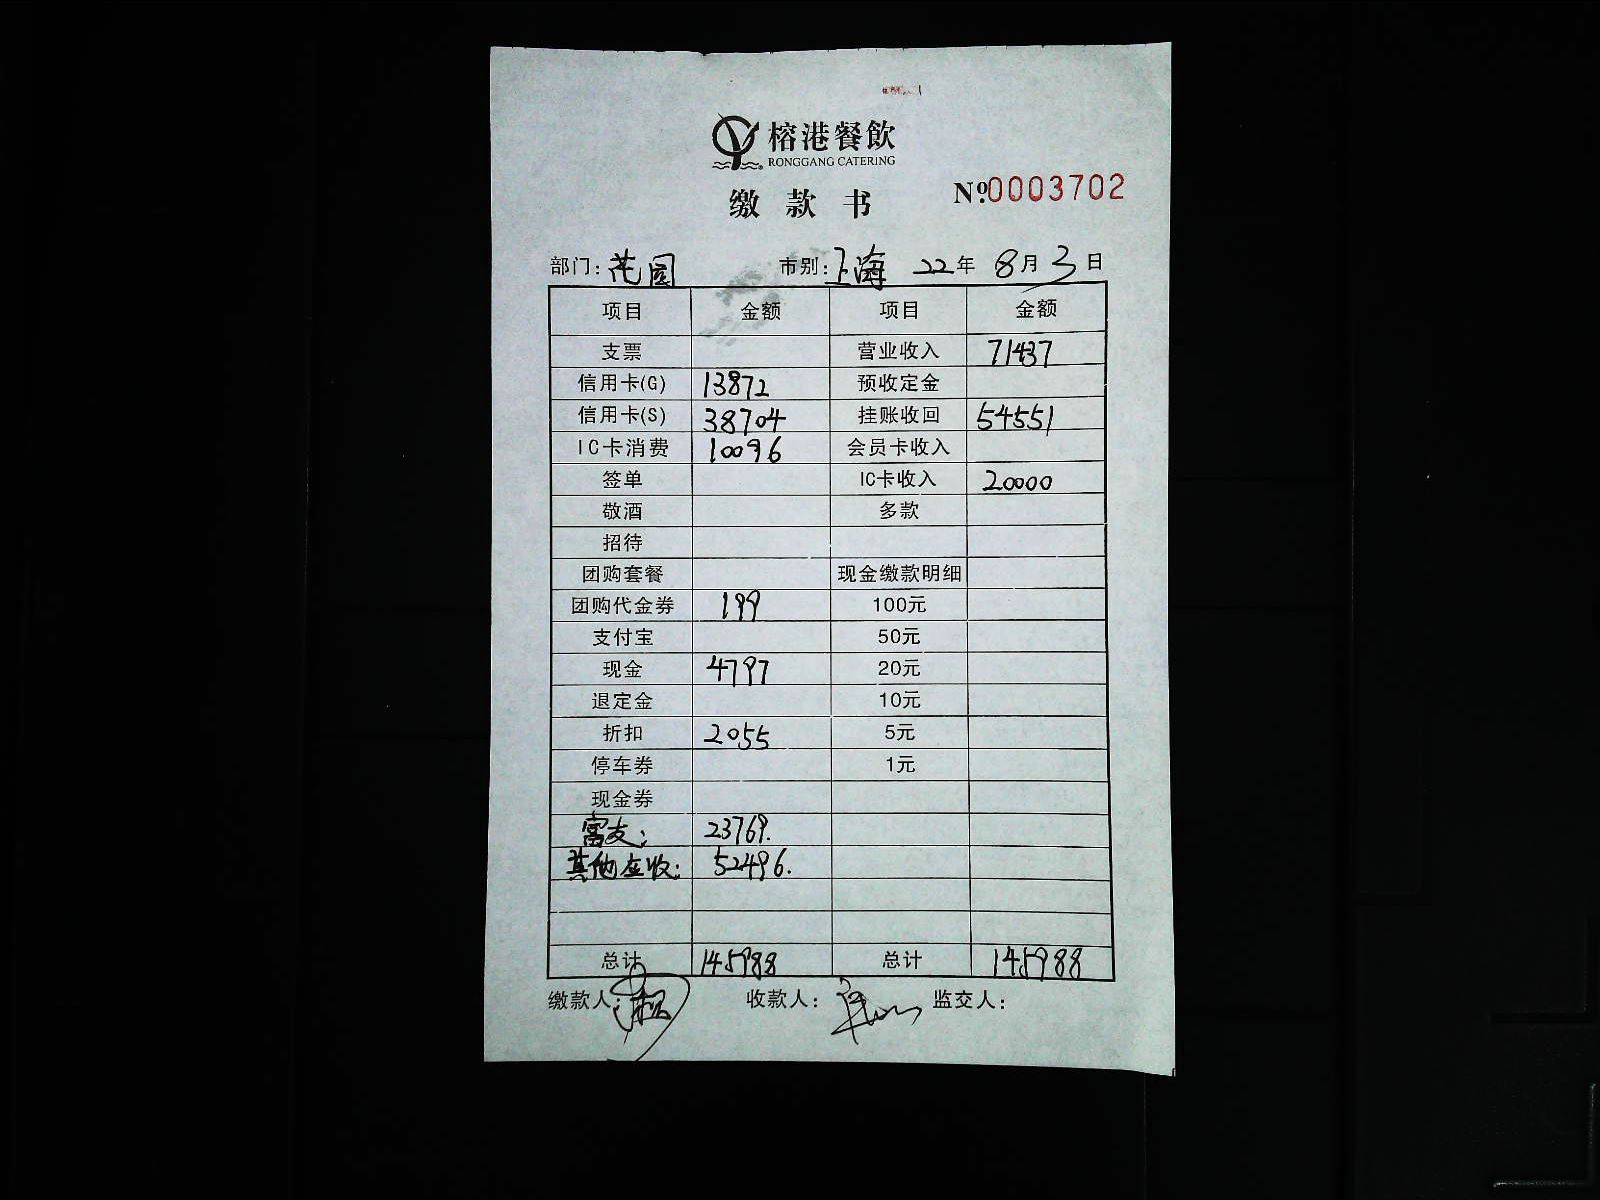 榕港餐飲
RONGGANG CATERING
缴款书 Nº.0003702
部门：花园 市别：上海 22年 8月 3日
项目 金额 项目 金额
支票 营业收入 71437
信用卡(G) 13872 预收定金
信用卡(S) 38704 挂账收回 54551
IC卡消费 10096 会员卡收入
签单 IC卡收入 20000
敬酒 多款
招待
团购套餐 现金缴款明细
团购代金券 199 100元
支付宝 50元
现金 4797 20元
退定金 10元
折扣 2055 5元
停车券 1元
现金券
富友： 23769.
其他应收： 52496.
总计 145988 总计 145988
缴款人： 收款人： 监交人：